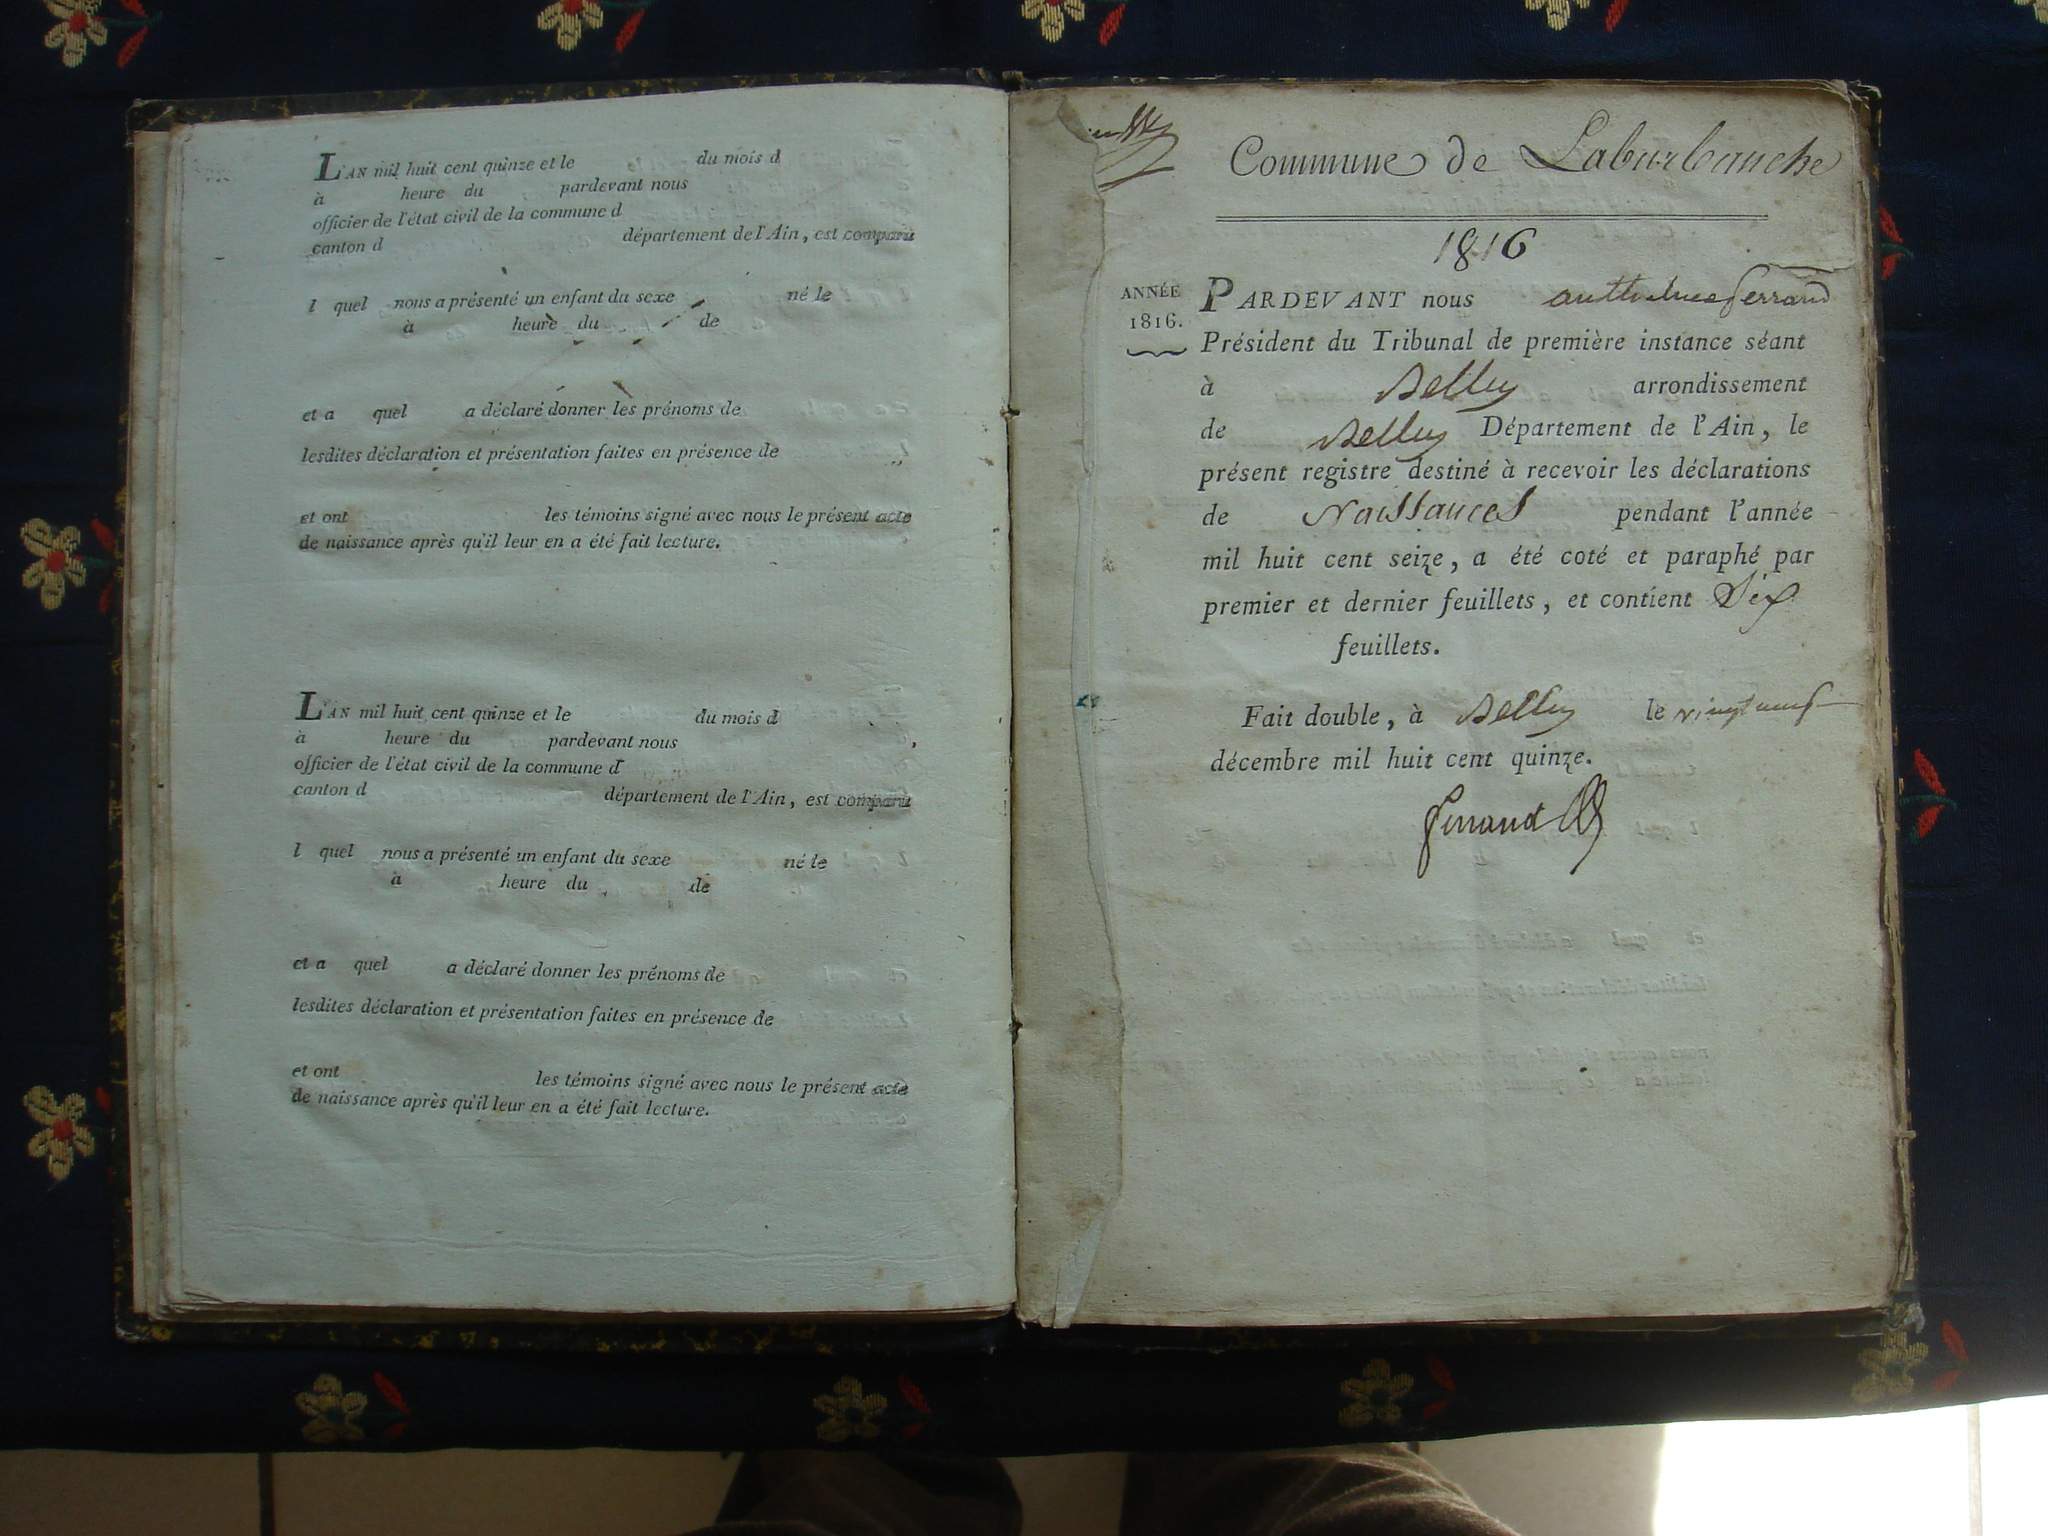 L'AN mil huit cent quinze et le du mois d
à heure du pardevant nous
officier de l'état civil de la commune d
canton d département de l'Ain, est comparu
l quel nous a présenté un enfant du sexe né le
à heure du de
et a quel a déclaré donner les prénoms de
lesdites déclaration et présentation faites en présence de
et ont les témoins signé avec nous le présent acte
de naissance après qu'il leur en a été fait lecture.
L'AN mil huit cent quinze et le du mois d
à heure du pardevant nous
officier de l'état civil de la commune d
canton d département de l'Ain, est comparu
l quel nous a présenté un enfant du sexe né le
à heure du de
et a quel a déclaré donner les prénoms de
lesdites déclaration et présentation faites en présence de
et ont les témoins signé avec nous le présent acte
de naissance après qu'il leur en a été fait lecture.
Commune de Laburbanche
1816
ANNÉE
1816.
PARDEVANT nous anthelme ferrand
Président du Tribunal de première instance séant
à Belley arrondissement
de Belley Département de l'Ain, le
présent registre destiné à recevoir les déclarations
de Naissances pendant l'année
mil huit cent seize, a été coté et paraphé par
premier et dernier feuillets, et contient Six
feuillets.
Fait double, à Belley le vingt neuf
décembre mil huit cent quinze.
ferrand